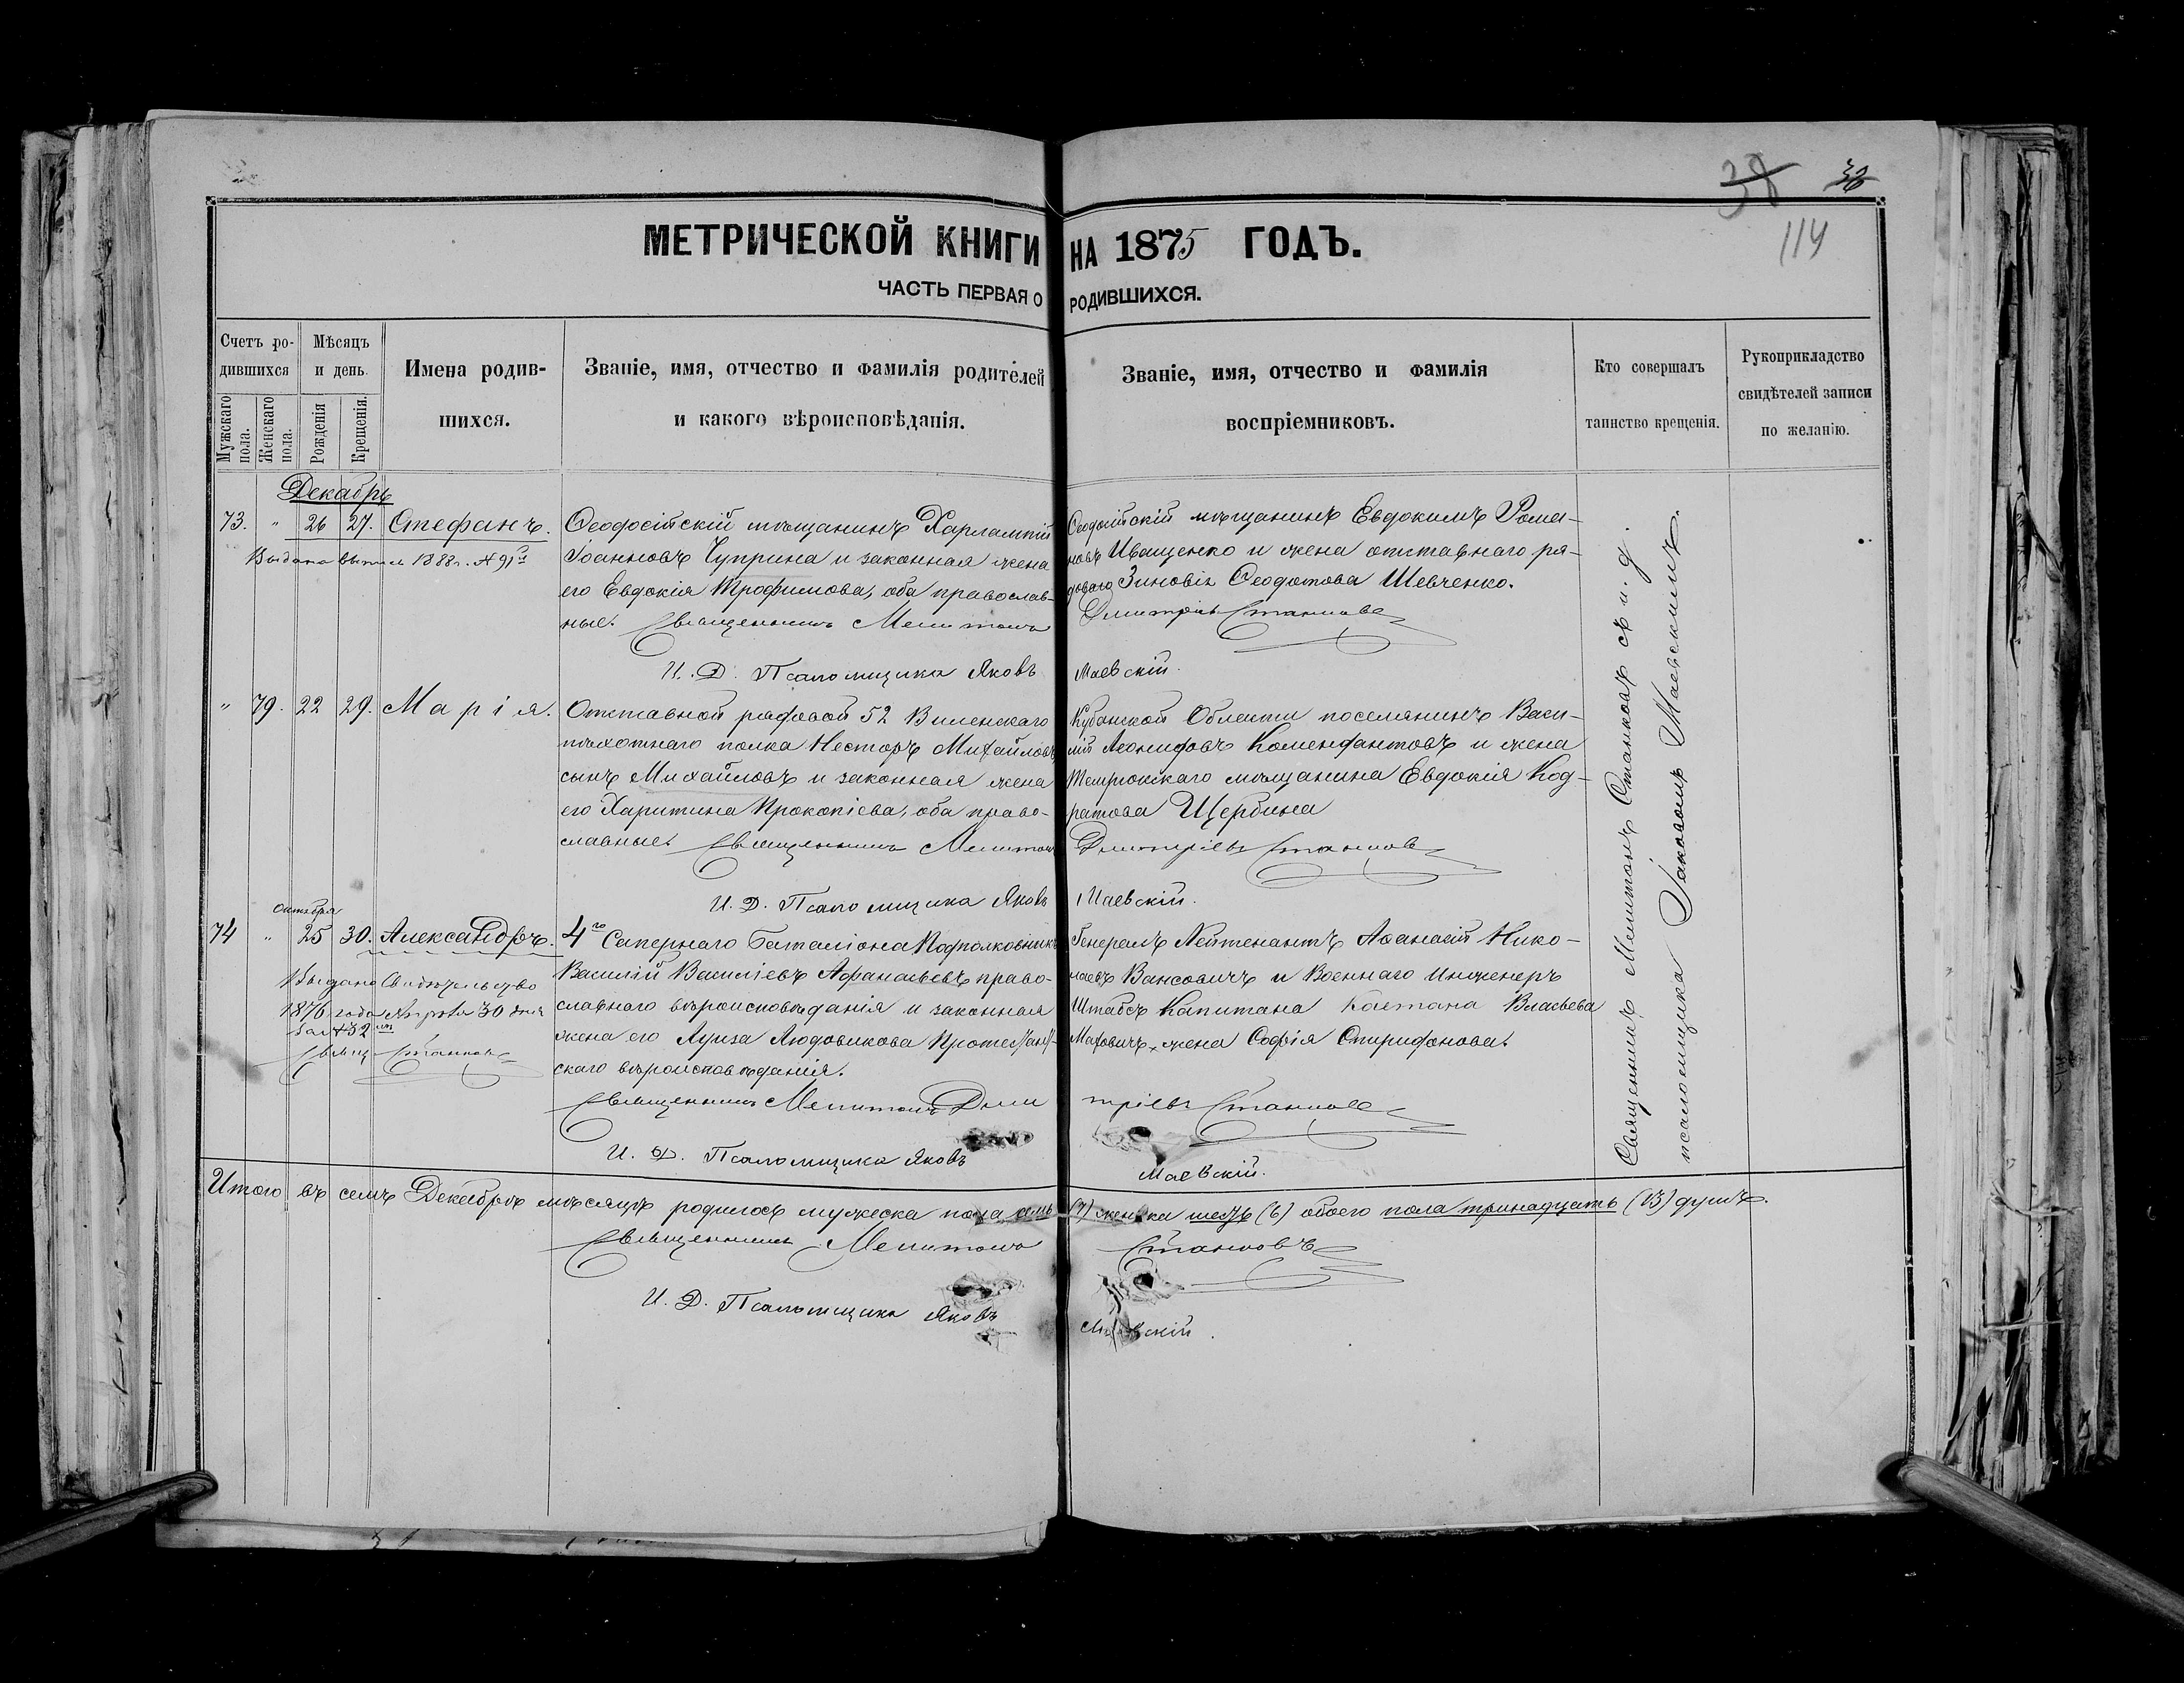 38 38
114
МЕТРИЧЕСКОЙ КНИГИ НА 1875 ГОДЪ.
ЧАСТЬ ПЕРВАЯ О РОДИВШИХСЯ.
Счетъ ро-
дившихся
Мужскаго пола.
Женскаго пола.
Мѣсяцъ
и день.
Рожденія
Крещенія.
Имена родив-
шихся.
Званіе, имя, отчество и фамилія родителей
и какого вѣроисповѣданія.
Званіе, имя, отчество и фамилія
воспріемниковъ.
Кто совершалъ
таинство крещенія.
Рукоприкладство
свидѣтелей записи
по желанію.
Декабрь
73. " 26 27. Стефанъ.
Выдана выпись 1888 г. № 91
Ѳеодосійскій мѣщанинъ Харлампій
Іоанновъ Чуприна и законная жена
его Евдокія Трофимова, оба православ-
ные. Священникъ Мелитонъ
И. Д. Псаломщика Яковъ
Ѳеодосійскій мѣщанинъ Евдокимъ Рома-
новъ Иващенко и жена отставнаго ря-
доваго Зиновія Ѳеодотова Шевченко.
Дмитріевъ Станковъ
Маевскій.
" 79. 22 29. Марія.
Отставной рядовой 52 Виленскаго
пѣхотнаго полка Несторъ Михайловъ
сынъ Михайловъ и законная жена
его Харитина Прокопіева, оба право-
славные. Священникъ Мелитонъ
И. Д. Псаломщика Яковъ
Кубанской Области поселянинъ Васи-
лій Леонидовъ Комендантовъ и жена
Темрюкскаго мѣщанина Евдокія Код-
ратова Щербина
Дмитріевъ Станковъ
Маевскій.
Октября
74 " 25 30. Александръ.
Выдано Свидѣтельство
1876 года Августа 30 дня
за № 32
Свящ. Станковъ
4го Сапернаго Баталіона Подполковникъ
Василій Василіевъ Афанасьевъ право-
славнаго вѣроисповѣданія и законная
жена его Луиза Людовикова Протестант-
скаго вѣроисповѣданія.
Священникъ Мелитонъ Дми
И. Д. Псаломщика Яковъ
Генералъ Лейтенантъ Аѳанасій Нико-
лаевъ Вансовичъ и Военнаго Инженеръ
Штабсъ Капитана Каетана Власьева
Махович жена Софія Спиридонова.
тріевъ Станковъ
Маевскій.
Священникъ Мелитонъ Станковъ съ и. д.
псаломщика Іаковомъ Маевскимъ.
Итого въ семъ Декабрѣ мѣсяцѣ родилось мужеска пола семь (7) женска шесть (6) обоего пола тринадцать (13) душъ.
Священникъ Мелитонъ Станковъ
И. Д. Псаломщика Яковъ Маевскій.